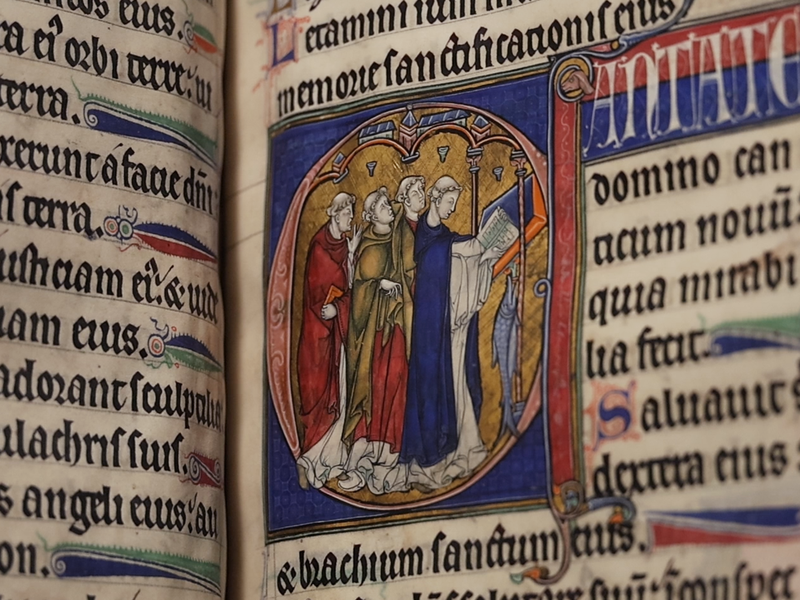 eius.
ca ei' orbi terre: ui
terra.
xerunt á facie dni
terra.
usticiam ei': & uid
uam eius.
adorant sculptilia
ulachris suis.
s angeli eius: au
on.
Letamini
memorie sanctificationis eius
CANTATE
domino can
ticum nouū.
quia mirabi
lia fecit.
Saluauit s
dextera eius
& brachium sanctum eius.